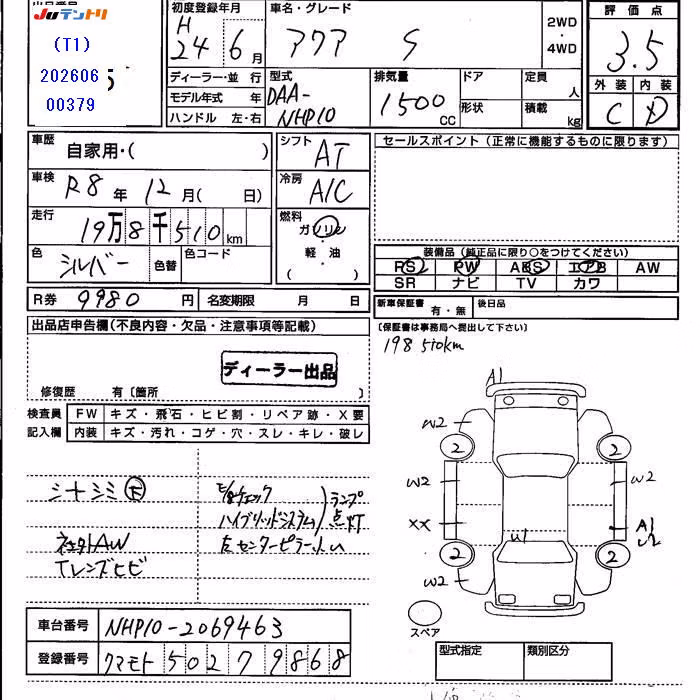 JUテントリ
(T1)
202606
00379
5
初度登録年月
H 24 6月
車名・グレード
アクア S
2WD ・ 4WD
評価点
3.5
外装 内装
C D
ディーラー・並行
モデル年式 年
ハンドル 左・右
型式
DAA-
NHP10
排気量
1500 CC
ドア
形状
定員 人
積載 kg
車歴 自家用・( )
車検 R8年 12月( 日)
走行 19万8千510km
色 シルバー 色替 色コード
シフト AT
冷房 A/C
燃料
ガソリン
・
軽油
( ・ )
セールスポイント(正常に機能するものに限ります)
装備品(純正品に限り○をつけてください)
PS PW ABS エアB AW
SR ナビ TV カワ
R券 9980円 名変期限 月 日
新車保証書 有・無 後日品
〔保証書は事務局へ提出して下さい〕
198510km
出品店申告欄(不良内容・欠品・注意事項等記載)
ディーラー出品
修復歴 有〔箇所 〕
検査員 FW キズ・飛石・ヒビ割・リペア跡・X要
記入欄 内装 キズ・汚れ・コゲ・穴・スレ・キレ・破レ
シートシミ
ハイブリッドシステム
ランプ
点灯
AW
左センターピラー
TレンズヒビA1
W2
2 2
W2 W2
XX A1
U1 U2
2 2
W2
スペア
車台番号 NHP10-2069463
登録番号 クマモト 502 7 9868
型式指定 類別区分